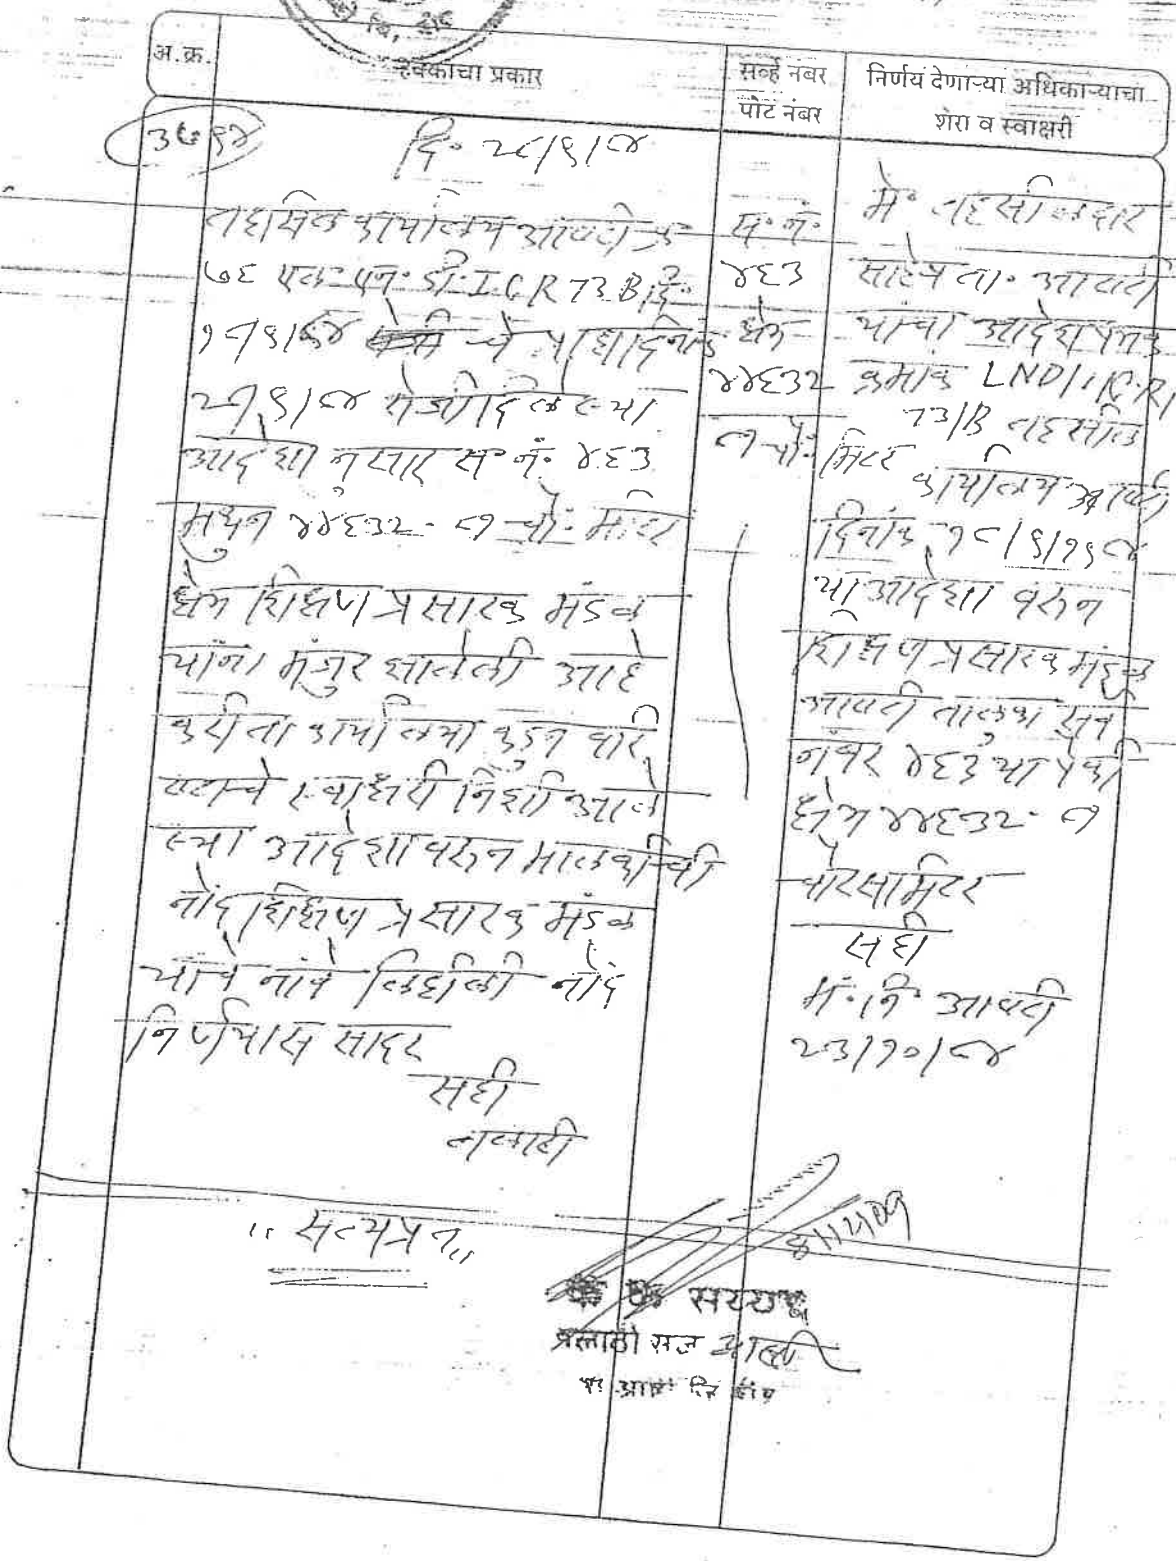 अ.क्र.
हक्काचा प्रकार
सर्व्हे नंबर
पोट नंबर
निर्णय देणाऱ्या अधिकाऱ्याचा
शेरा व स्वाक्षरी
दि. २८/९/८४
तहसिल कार्यालय आष्टी क्र
७६ एल. एन. डी. I C R 73 B दि.
१८/९/८४ चे प्रधादिनांक
२१/९/८४ रोजी दिलेल्या
आदेशा नुसार स. नं. ४६३
मधुन ४४६३२.८१ चौ. मीटर
क्षेत्र शिक्षण प्रसारक मंडळ
यांना मंजुर झालेली आहे
करीता कार्यालया कडुन वरि
ष्ठाचे स्वाक्षरी निशी आले
ल्या आदेशावरुन मालकीची
नोंद शिक्षण प्रसारक मंडळ
यांचे नांवे लिहीली नोंद
निर्णयास सादर
सही
तलाठी
स. नं.
४६३
क्षेत्र
४४६३२
८१ चौ. मिटर
मे. तहसीलदार
साहेब ता. आष्टी
यांचा आदेश पत्रक
क्रमांक LND/1/C.R/
73/B तहसील
कार्यालय आष्टी
दिनांक १८/९/१९८४
या आदेशा वरुन
शिक्षण प्रसारक मंडळ
आष्टी तालुका सर्वे
नंबर ४६३ या पैकी
क्षेत्र ४४६३२.८१
चौरसमिटर
सही
मं. नि. आष्टी
२३/१०/८४
,, सत्यप्रत ,,
सय्यद
तलाठी सज आष्टी